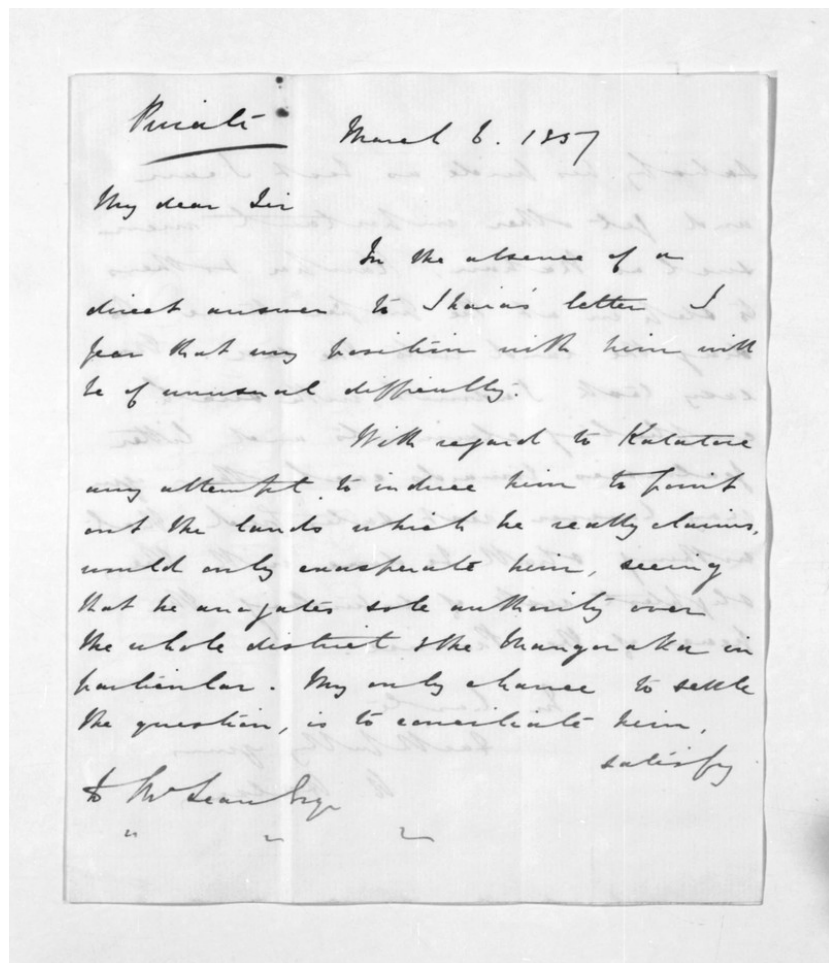 Private
March 6. 1857
My dear Sir
In the absence of a
direct answer to Ihaia's letter I
fear that my position with him will
be of unusual difficulty.
With regard to Katatore
any attempt to induce him to point
out the lands which he really claims,
would only exasperate him, seeing
that he arrogates sole authority over
the whole district & the Mangoraka in
particular. My only chance to settle
the question, is to conciliate him,
satisfy
D McLean Esqr
" " "